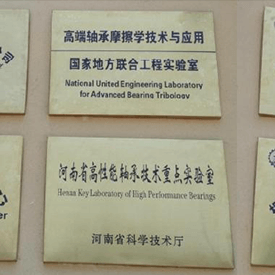 高端轴承摩擦学技术与应用
国家地方联合工程实验室
National United Engineering Laboratory
for Advanced Bearing Tribology
河南省高性能轴承技术重点实验室
Henan Key Laboratory of High Performance Bearings
河南省科学技术厅